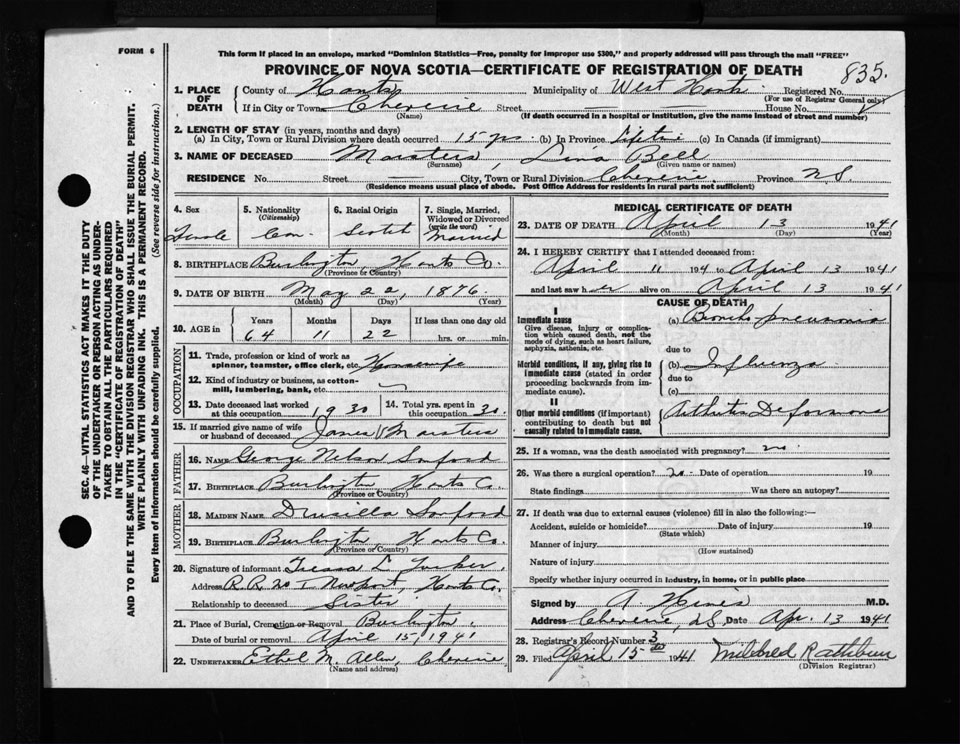 FORM 6
This form if placed in an envelope, marked "Dominion Statistics—Free, penalty for improper use $300," and properly addressed will pass through the mail "FREE"
PROVINCE OF NOVA SCOTIA—CERTIFICATE OF REGISTRATION OF DEATH 835.
1. PLACE OF DEATH County of Hants Municipality of West Hants Registered No.
(For use of Registrar General only)
If in City or Town Cheverie Street House No.
(Name) (If death occurred in a hospital or institution, give the name instead of street and number)
2. LENGTH OF STAY (in years, months and days)
(a) In City, Town or Rural Division where death occurred 15 yrs (b) In Province Lifetime (c) In Canada (if immigrant)
3. NAME OF DECEASED Marsters, Lina Bell
(Surname) (Given name or names)
RESIDENCE No. Street City, Town or Rural Division Cheverie Province N.S.
(Residence means usual place of abode. Post Office Address for residents in rural parts not sufficient)
4. Sex Female
5. Nationality (Citizenship) Can.
6. Racial Origin Scotch
7. Single, Married, Widowed or Divorced (write the word) Married
8. BIRTHPLACE Burlington, Hants Co.
(Province or Country)
9. DATE OF BIRTH May 22, 1876
(Month) (Day) (Year)
10. AGE in Years Months Days If less than one day old
64 11 22 hrs. or min.
OCCUPATION
11. Trade, profession or kind of work as spinner, teamster, office clerk, etc. Housewife
12. Kind of industry or business, as cotton-mill, lumbering, bank, etc.
13. Date deceased last worked at this occupation 1930
14. Total yrs. spent in this occupation 30.
15. If married give name of wife or husband of deceased James Marsters
FATHER
16. NAME George Nelson Sanford
17. BIRTHPLACE Burlington Hants Co.
(Province or Country)
MOTHER
18. MAIDEN NAME Drusilla Sanford
19. BIRTHPLACE Burlington, Hants Co.
(Province or Country)
20. Signature of informant L.
Address R.R. No 1 Newport, Hants Co.
Relationship to deceased Sister
21. Place of Burial, Cremation or Removal Burlington,
Date of burial or removal April 15, 1941
22. UNDERTAKER Ethel M. Allen, Cheverie
(Name and address)
MEDICAL CERTIFICATE OF DEATH
23. DATE OF DEATH April 13 1941
(Month) (Day) (Year)
24. I HEREBY CERTIFY that I attended deceased from
April 11 194 to April 13 1941
and last saw her alive on April 13 1941
CAUSE OF DEATH
I
Immediate cause (a) Broncho pneumonia
Give disease, injury or complication which caused death, not the mode of dying, such as heart failure, asphyxia, asthenia, etc.
due to
Morbid conditions, if any, giving rise to immediate cause (stated in order proceeding backwards from immediate cause).
(b) Influenza
due to
(c)
II
Other morbid conditions (if important) contributing to death but not causally related to immediate cause.
Arthritis Deformans
25. If a woman, was the death associated with pregnancy? no
26. Was there a surgical operation? no. Date of operation 19
State findings Was there an autopsy?
27. If death was due to external causes (violence) fill in also the following:—
Accident, suicide or homicide? Date of injury 19
(State which)
Manner of injury
(How sustained)
Nature of injury
Specify whether injury occurred in industry, in home, or in public place
Signed by A Hines M.D.
Address Cheverie, N.S. Date Apr. 13 1941
28. Registrar's Record Number 3
29. Filed April 15th 1941 Mildred Rathbun
(Division Registrar)
SEC. 46—VITAL STATISTICS ACT MAKES IT THE DUTY
OF THE UNDERTAKER OR PERSON ACTING AS UNDER-
TAKER TO OBTAIN ALL THE PARTICULARS REQUIRED
IN THE "CERTIFICATE OF REGISTRATION OF DEATH"
AND TO FILE THE SAME WITH THE DIVISION REGISTRAR WHO SHALL ISSUE THE BURIAL PERMIT.
WRITE PLAINLY WITH UNFADING INK. THIS IS A PERMANENT RECORD.
Every item of information should be carefully supplied. (See reverse side for instructions.)